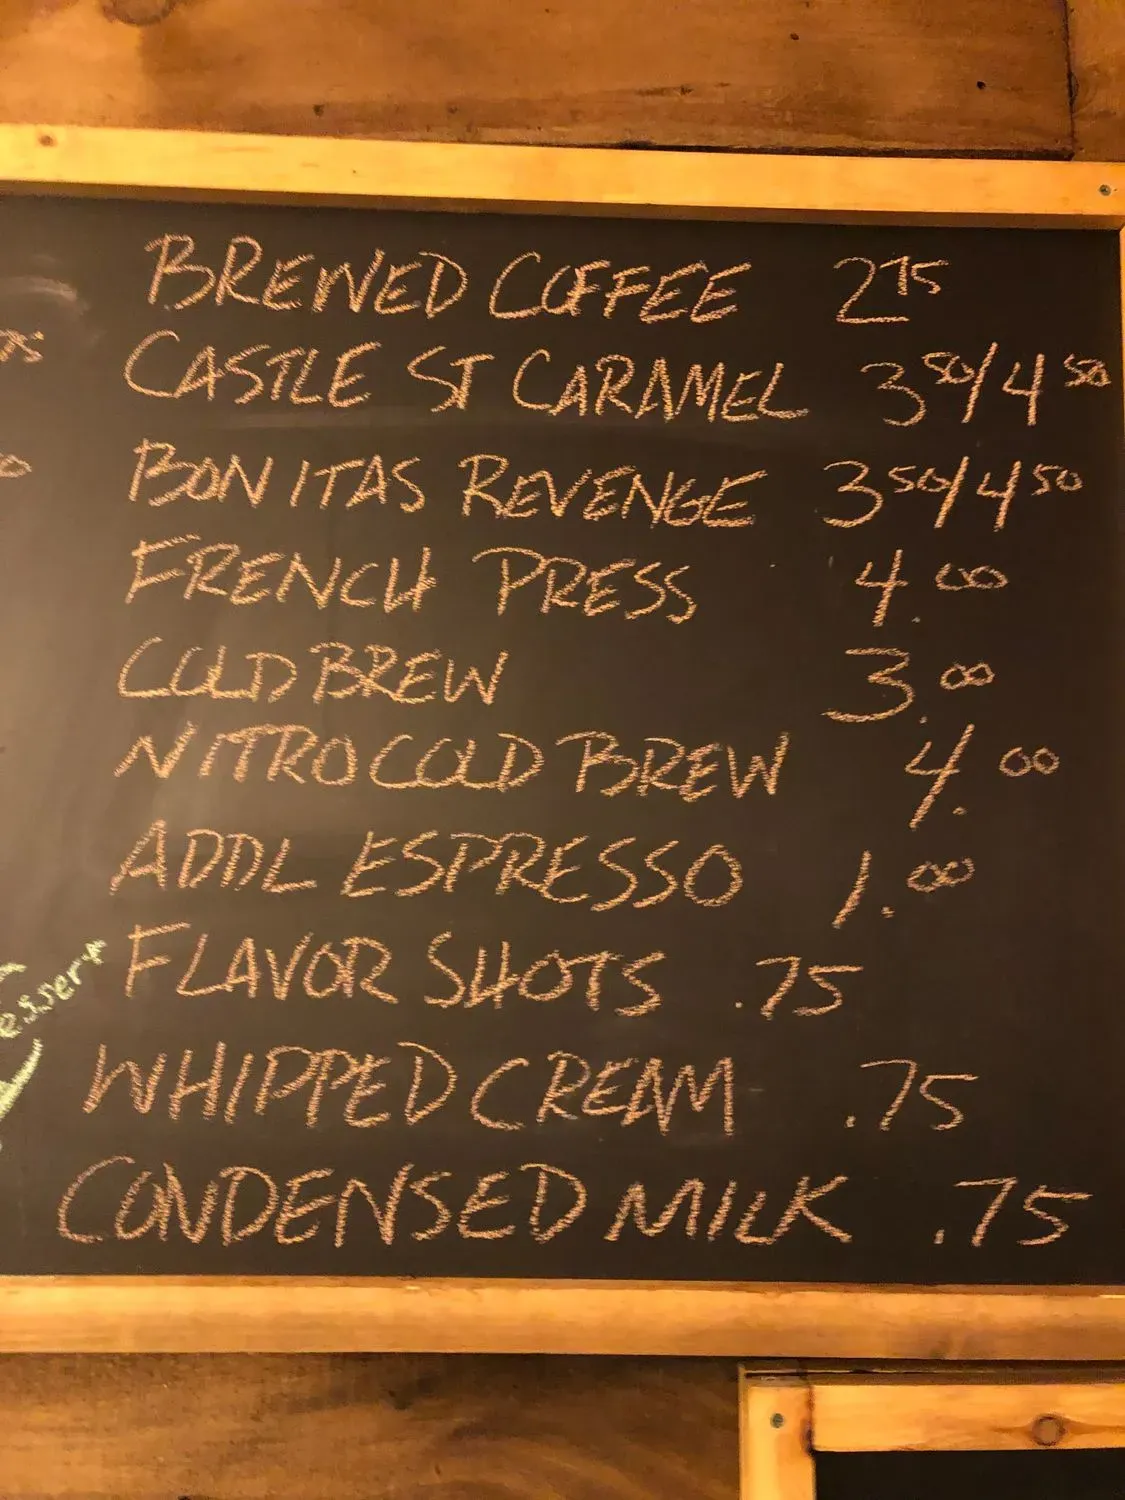 BREWED COFFEE 2 75
CASTLE ST CARAMEL 3 50/4 50
BONITAS REVENGE 3 50/4 50
FRENCH PRESS 4.00
COLD BREW 3.00
NITRO COLD BREW 4.00
ADDL ESPRESSO 1.00
FLAVOR SHOTS .75
WHIPPED CREAM .75
CONDENSED MILK .75